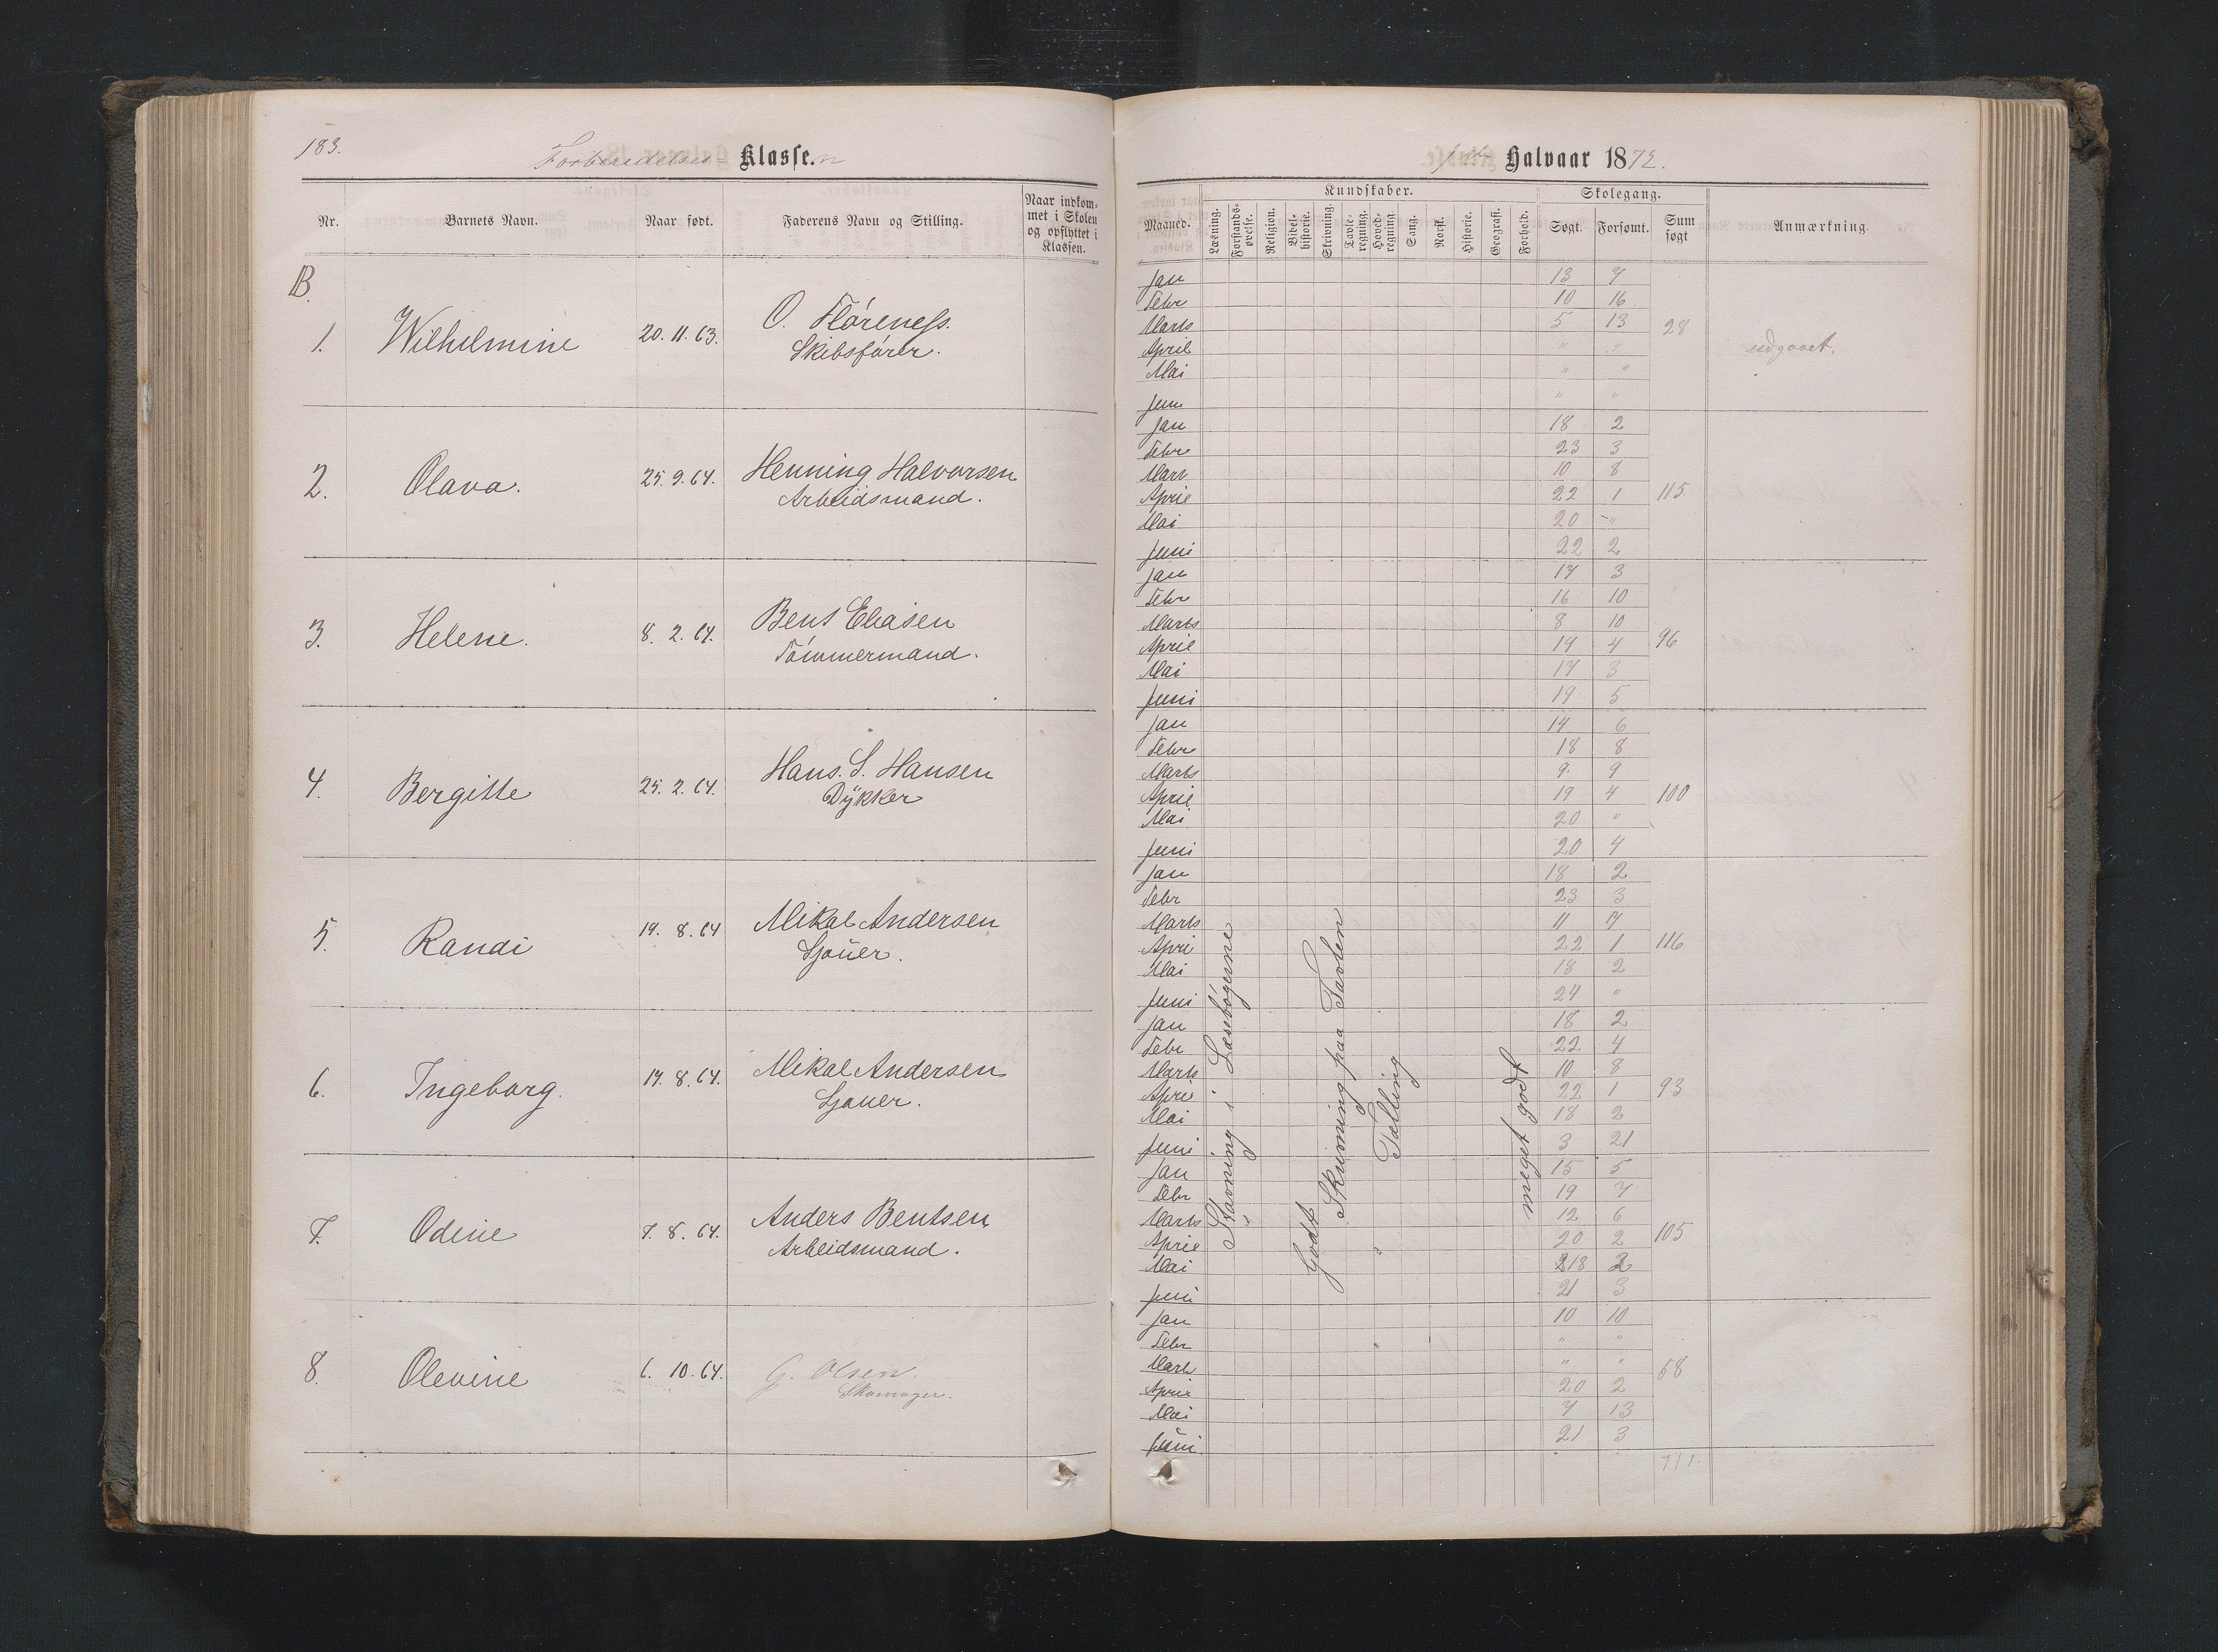 183.
Forberedelses- Klasse.n
Nr.
Barnets Navn.
Naar født.
Faderens Navn og Stilling.
Naar indkom-
met i Skolen
og opflyttet i
Klassen.
B.
1.
Wilhelmine
20. 11. 63.
O. Flóreness.
Skibsfórer.
2.
Olava.
25. 9. 64.
Henning Halvorsen
Arbeidsmand.
3.
Helene.
8. 2. 64.
Bent Eliasen
Tómmermand.
4.
Bergitte
25. 2. 64.
Hans. S. Hansen
Dÿkker
5.
Randi
19. 8. 64
Mikal Andersen
Sjouer.
6.
Ingeborg.
19. 8. 64.
Mikal Andersen
Sjauer.
7.
Odine
7. 8. 64.
Anders Bentsen
Arbeidsmand.
8.
Olevine
6. 10. 64.
G. Olsen.
Skomager.
1ste Halvaar 1872.
Maaned.
Kundskaber.
Læsning.
Forstands-
øvelse.
Religion.
Bibel-
historie.
Skrivning.
Tavle-
regning.
Hoved-
regning.
Sang.
Norsk.
Historie.
Geografi.
Forhold.
Skolegang.
Søgt.
Forsømt.
Sum
søgt
Anmærkning.
Jan 13 7
Febr 10 16
Marts 5 13 28
April " " udgaaet.
Mai " "
Juni " "
Jan 18 2
Febr 23 3
Mart 10 8
April 22 1 115
Mai 20 "
Juni 22 2
Jan 17 3
Febr 16 10
Marts 8 10
April 19 4 96
Mai 17 3
Juni 19 5
Jan 14 6
Febr 18 8
Marts 9 9
April 19 4 100
Mai 20 "
Juni 20 4
Jan 18 2
Febr 23 3
Marts 11 7
Apri 22 1 116
Mai 18 2
Juni 24 "
Jan 18 2
Febr 22 4
Marts 10 8
April 22 1 93
Mai 18 2
Juni 3 21
Jan 15 5
Febr 19 7
Marts 12 6
April 20 2 105
Mai 18 2
Juni 21 3
Jan 10 10
Febr " "
Mart " " 58
April 20 2
Mai 7 13
Juni 21 3
711
Stavning i Læsebógerne
Godt
Skrivning paa Tavlen
Tælling
meget godt